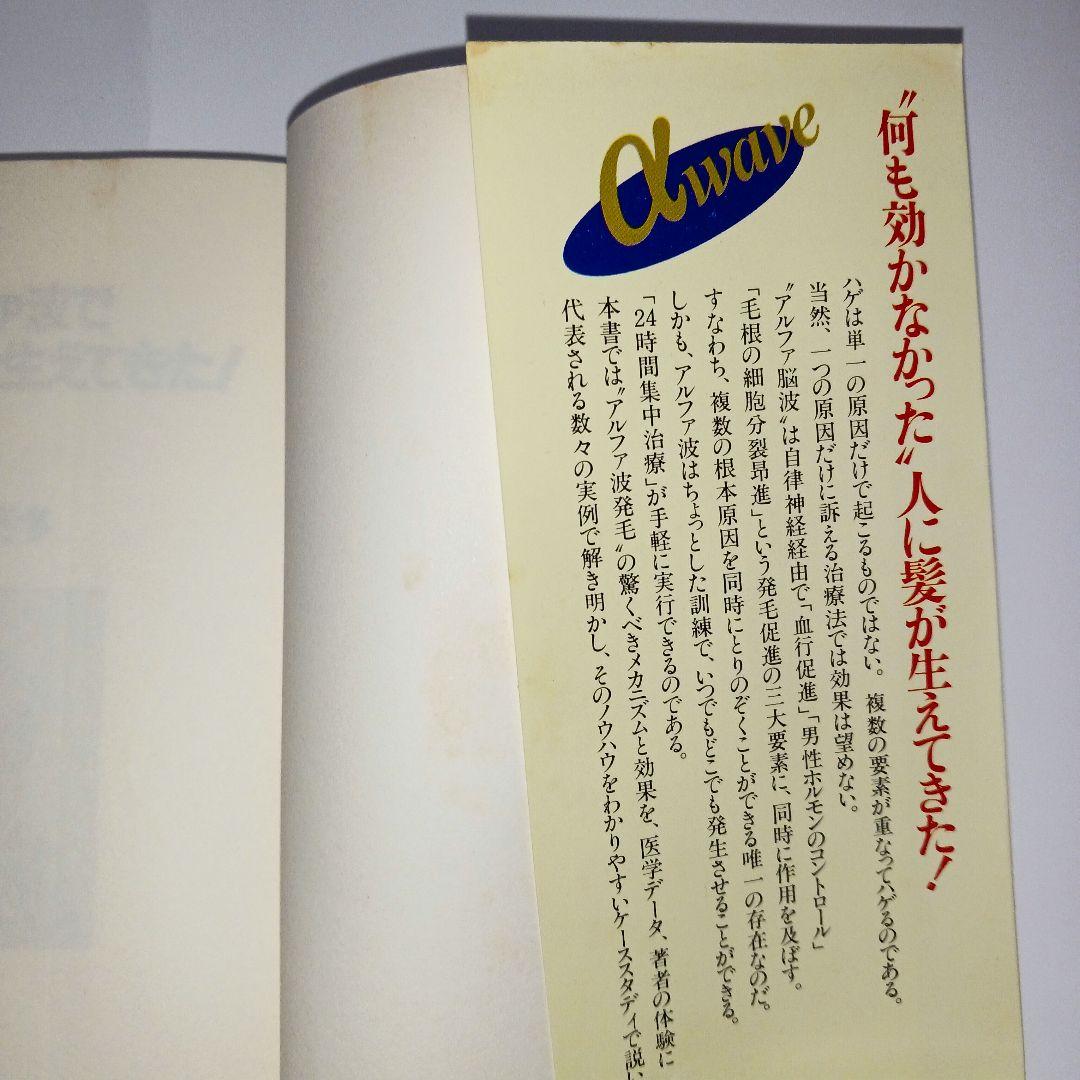 〝何も効かなかった〟人に髪が生えてきた!
αwave
ハゲは単一の原因だけで起こるものではない。複数の要素が重なってハゲるのである。
当然、一つの原因だけに訴える治療法では効果は望めない。
〝アルファ脳波〟は自律神経経由で「血行促進」「男性ホルモンのコントロール」
「毛根の細胞分裂昂進」という発毛促進の三大要素に、同時に作用を及ぼす。
すなわち、複数の根本原因を同時にとりのぞくことができる唯一の存在なのだ。
しかも、アルファ波はちょっとした訓練で、いつでもどこでも発生させることができる。
「24時間集中治療」が手軽に実行できるのである。
本書では〝アルファ波発毛〟の驚くべきメカニズムと効果を、医学データ、著者の体験に
代表される数々の実例で解き明かし、そのノウハウをわかりやすいケーススタディで説い